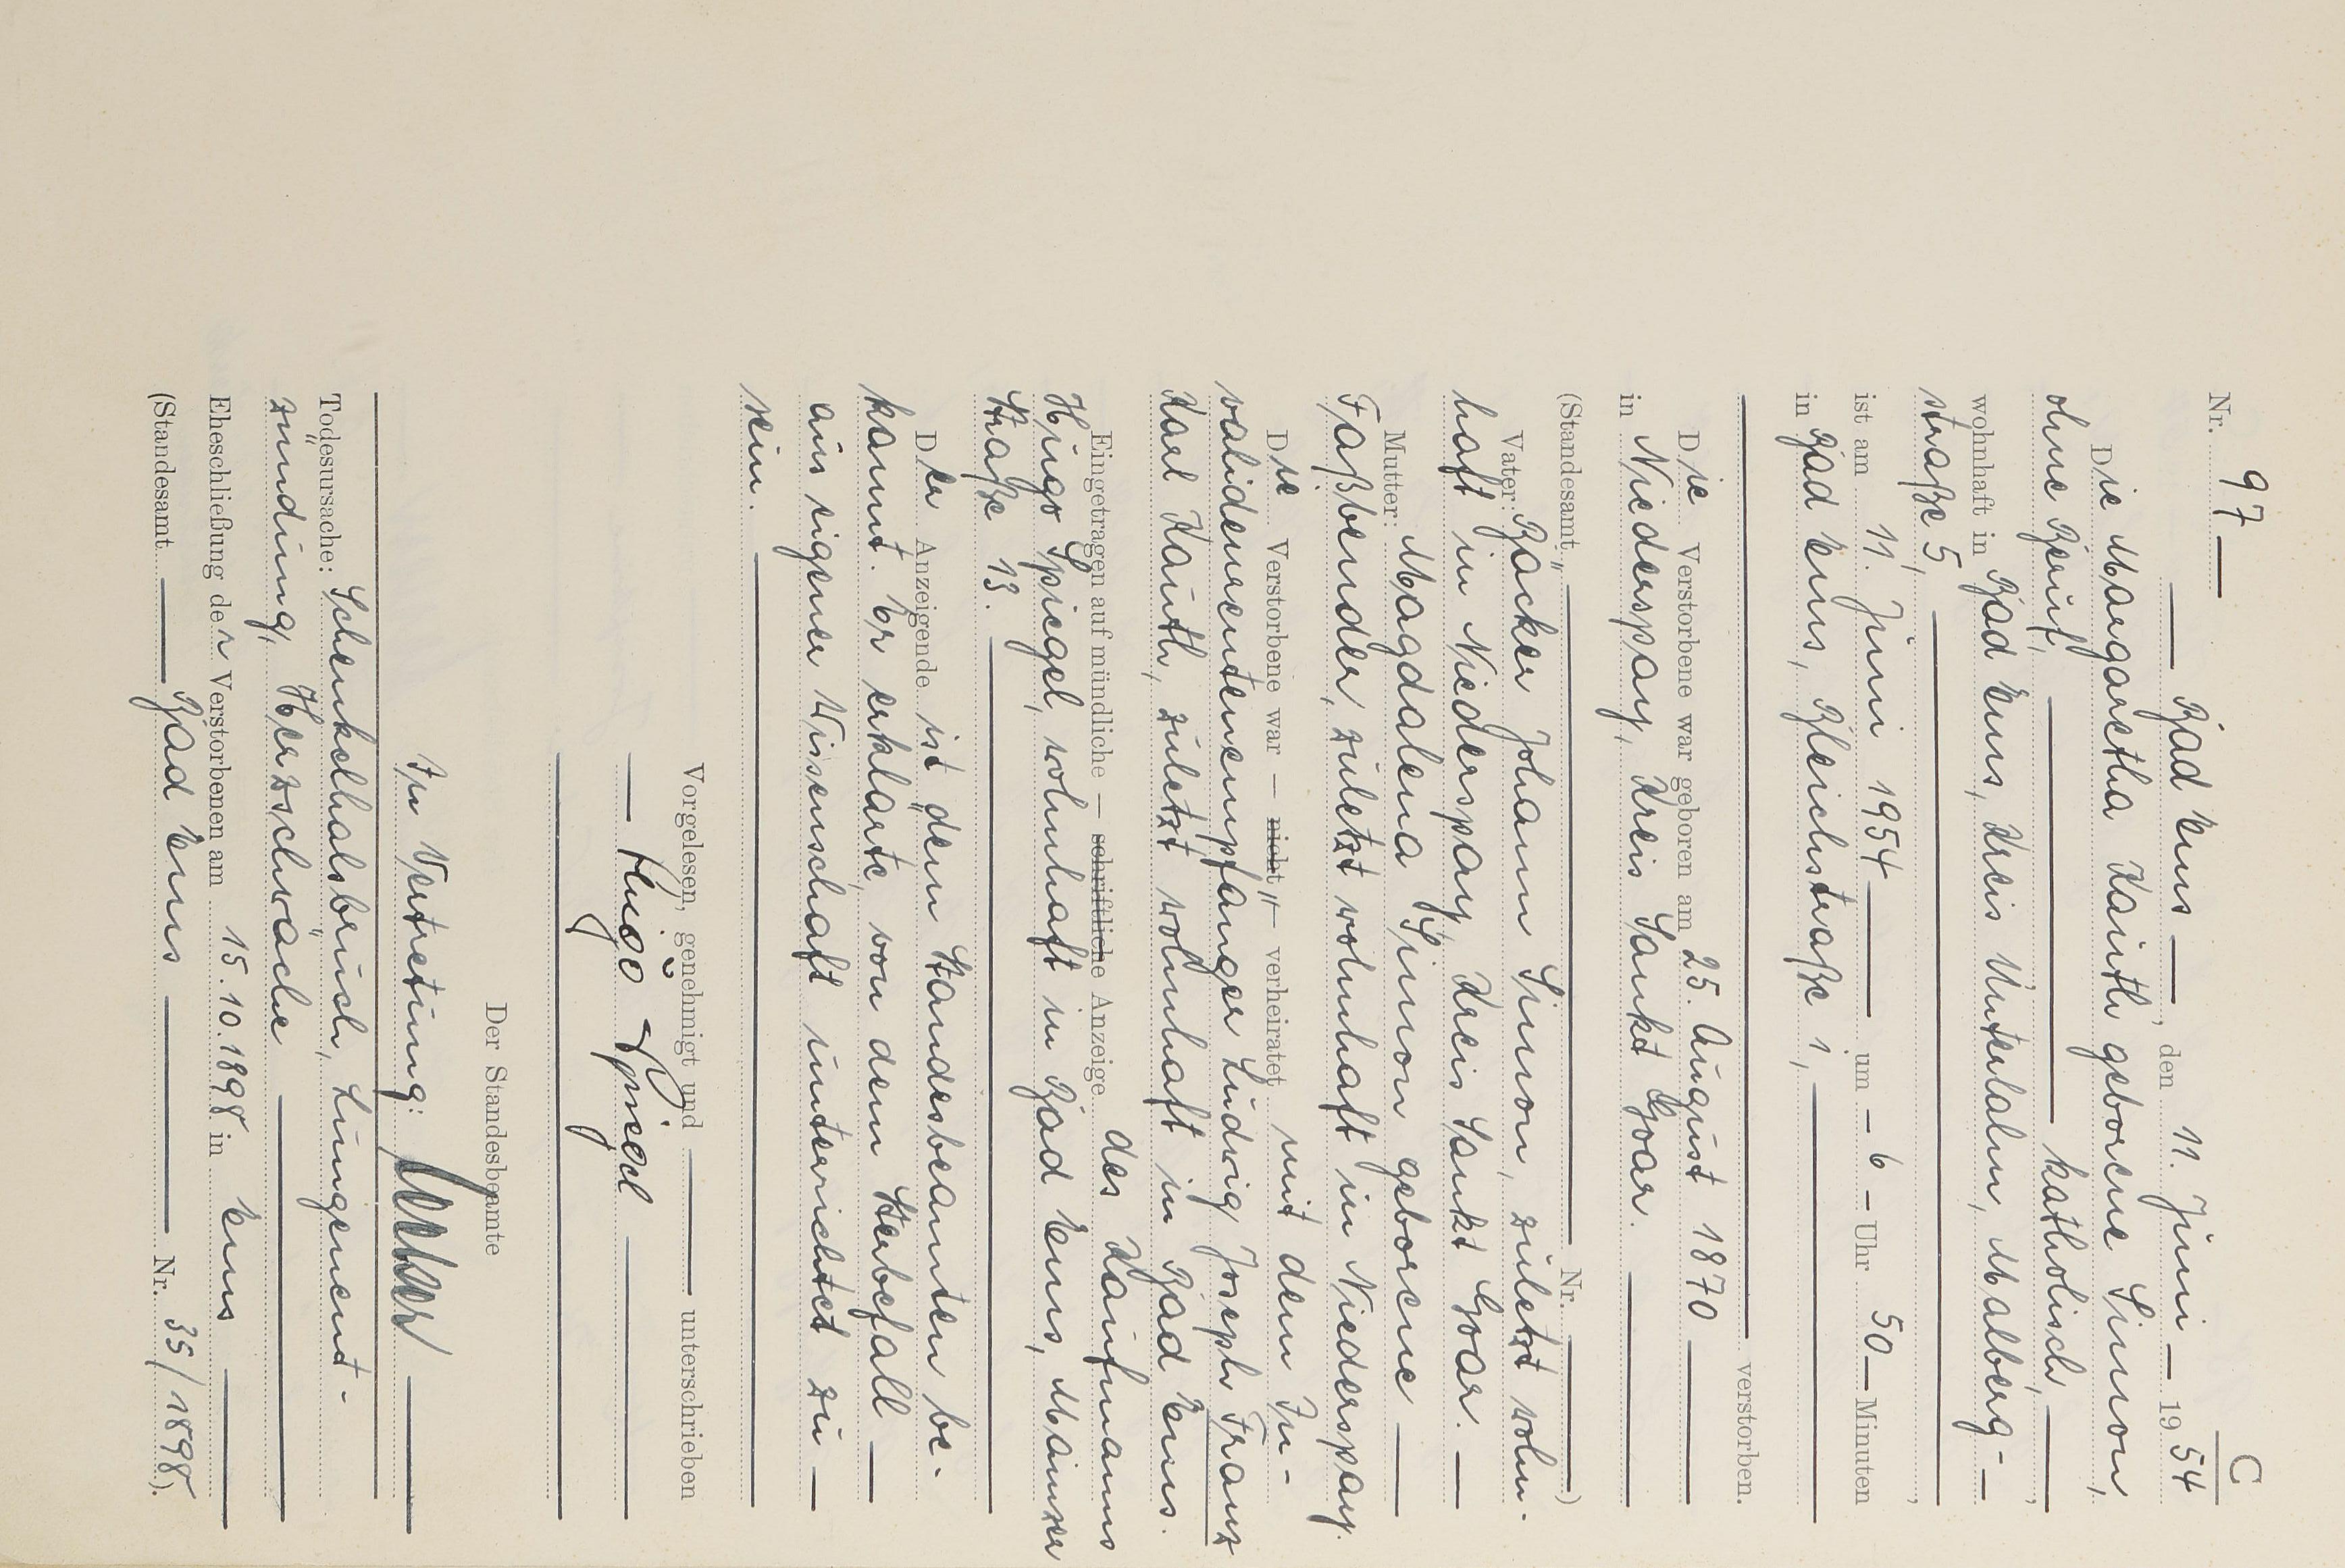 C
Nr. 97
Bad Ems, den 11. Juni 1954
Die Margaretha Kauth geborene Simon,
ohne Beruf, katholisch,
wohnhaft in Bad Ems, Kreis Unterlahn, Malberg-
straße 5,
ist am 11. Juni 1954 um - 6 - Uhr 50 Minuten
in Bad Ems, Bleichstraße 1,
verstorben.
Die Verstorbene war geboren am 25. August 1870
in Niederspay, Kreis Sankt Goar.
(Standesamt Nr. )
Vater: Bäcker Johann Simon, zuletzt wohn-
haft in Niederspay, Kreis Sankt Goar.
Mutter: Magdalena Simon geborene
Faßbender, zuletzt wohnhaft in Niederspay.
Die Verstorbene war — nicht — verheiratet mit dem In-
validenrentenempfänger Ludwig Joseph Franz
Karl Kauth, zuletzt wohnhaft in Bad Ems.
Eingetragen auf mündliche — schriftliche Anzeige des Kaufmanns
Hugo Spiegel, wohnhaft in Bad Ems, Mainzer
Straße 13.
Der Anzeigende ist dem Standesbeamten be-
kannt. Er erklärte, von dem Sterbefall
aus eigener Wissenschaft unterrichtet zu
sein.
Vorgelesen, genehmigt und unterschrieben
Hugo Spiegel
Der Standesbeamte
In Vertretung: Weber
Todesursache: Schenkelhalsbruch, Lungenent-
zündung, Herzschwäche
Eheschließung der Verstorbenen am 15.10.1898 in Ems
(Standesamt Bad Ems Nr. 35/1898).